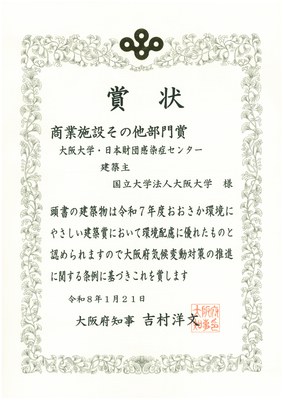 賞状
商業施設その他部門賞
大阪大学・日本財団感染症センター
建築主
国立大学法人大阪大学 様
頭書の建築物は令和7年度おおさか環境に
やさしい建築賞において環境配慮に優れたものと
認められますので大阪府気候変動対策の推進
に関する条例に基づきこれを賞します
令和8年1月21日
大阪府知事 吉村洋文